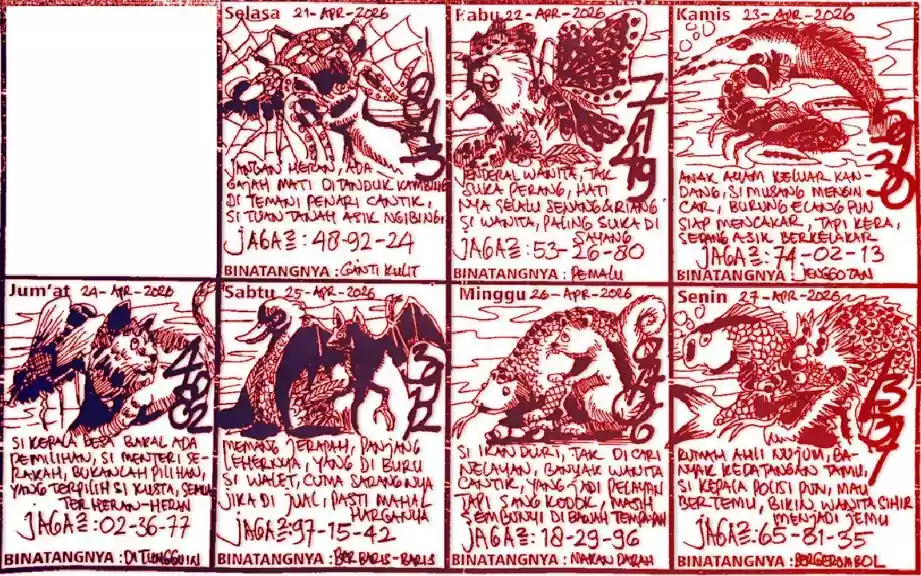 Selasa 21-APR-2026
JANGAN HERAN, ADA
GAJAH MATI DITANDUK KAMBING
DI TEMANI PENARI CANTIK,
SI TUAN TANAH ASIK NGIBING,
JAGA2=: 48-92-24
BINATANGNYA : GANTI KULIT
Rabu 22-APR-2026
JENDERAL WANITA, TAK
SUKA PERANG, HATI
NYA SELALU SENANG & RIANG
SI WANITA, PALING SUKA DI
SAYANG
JAGA2=: 53-26-80
BINATANGNYA : PEMALU
Kamis 23-APR-2026
ANAK AYAM KELUAR KAN-
DANG, SI MUSANG MENGIN
CAR, BURUNG ELANG PUN
SIAP MENCAKAR, TAPI KERA,
SEDANG ASIK BERKELAKAR
JAGA2=: 74-02-13
BINATANGNYA : JENGGOTAN
Jum'at 24-APR-2026
SI KEPALA DESA BAKAL ADA
PEMILIHAN, SI MENTERI SE-
RAKAH, BUKANLAH PILIHAN,
YANG TERPILIH SI KUSTA, SEMUA
TERHERAN-HERAN
JAGA2=: 02-36-77
BINATANGNYA : DI TUNGGUIN
Sabtu 25-APR-2026
MEMANG JERAPAH, PANJANG
LEHERNYA, YANG DI BURU
SI WALET, CUMA SARANGNYA
JIKA DI JUAL, PASTI MAHAL
HARGANYA
JAGA2=: 97-15-42
BINATANGNYA : BERBARIS-BARIS
Minggu 26-APR-2026
SI IKAN DURI, TAK DI CARI
NELAYAN, BANYAK WANITA
CANTIK, YANG JADI PELAYAN
TAPI SANG KODOK, MASIH
SEMBUNYI DI BAWAH TEMPAYAN
JAGA2=: 18-29-96
BINATANGNYA : MAKAN DARAH
Senin 27-APR-2026
RUMAH AHLI NUJUM, BA-
NYAK KEDATANGAN TAMU,
SI KEPALA POLISI PUN, MAU
BERTEMU, BIKIN WANITA SIHIR
MENJADI JEMU
JAGA2=: 65-81-35
BINATANGNYA : BERGEROMBOL